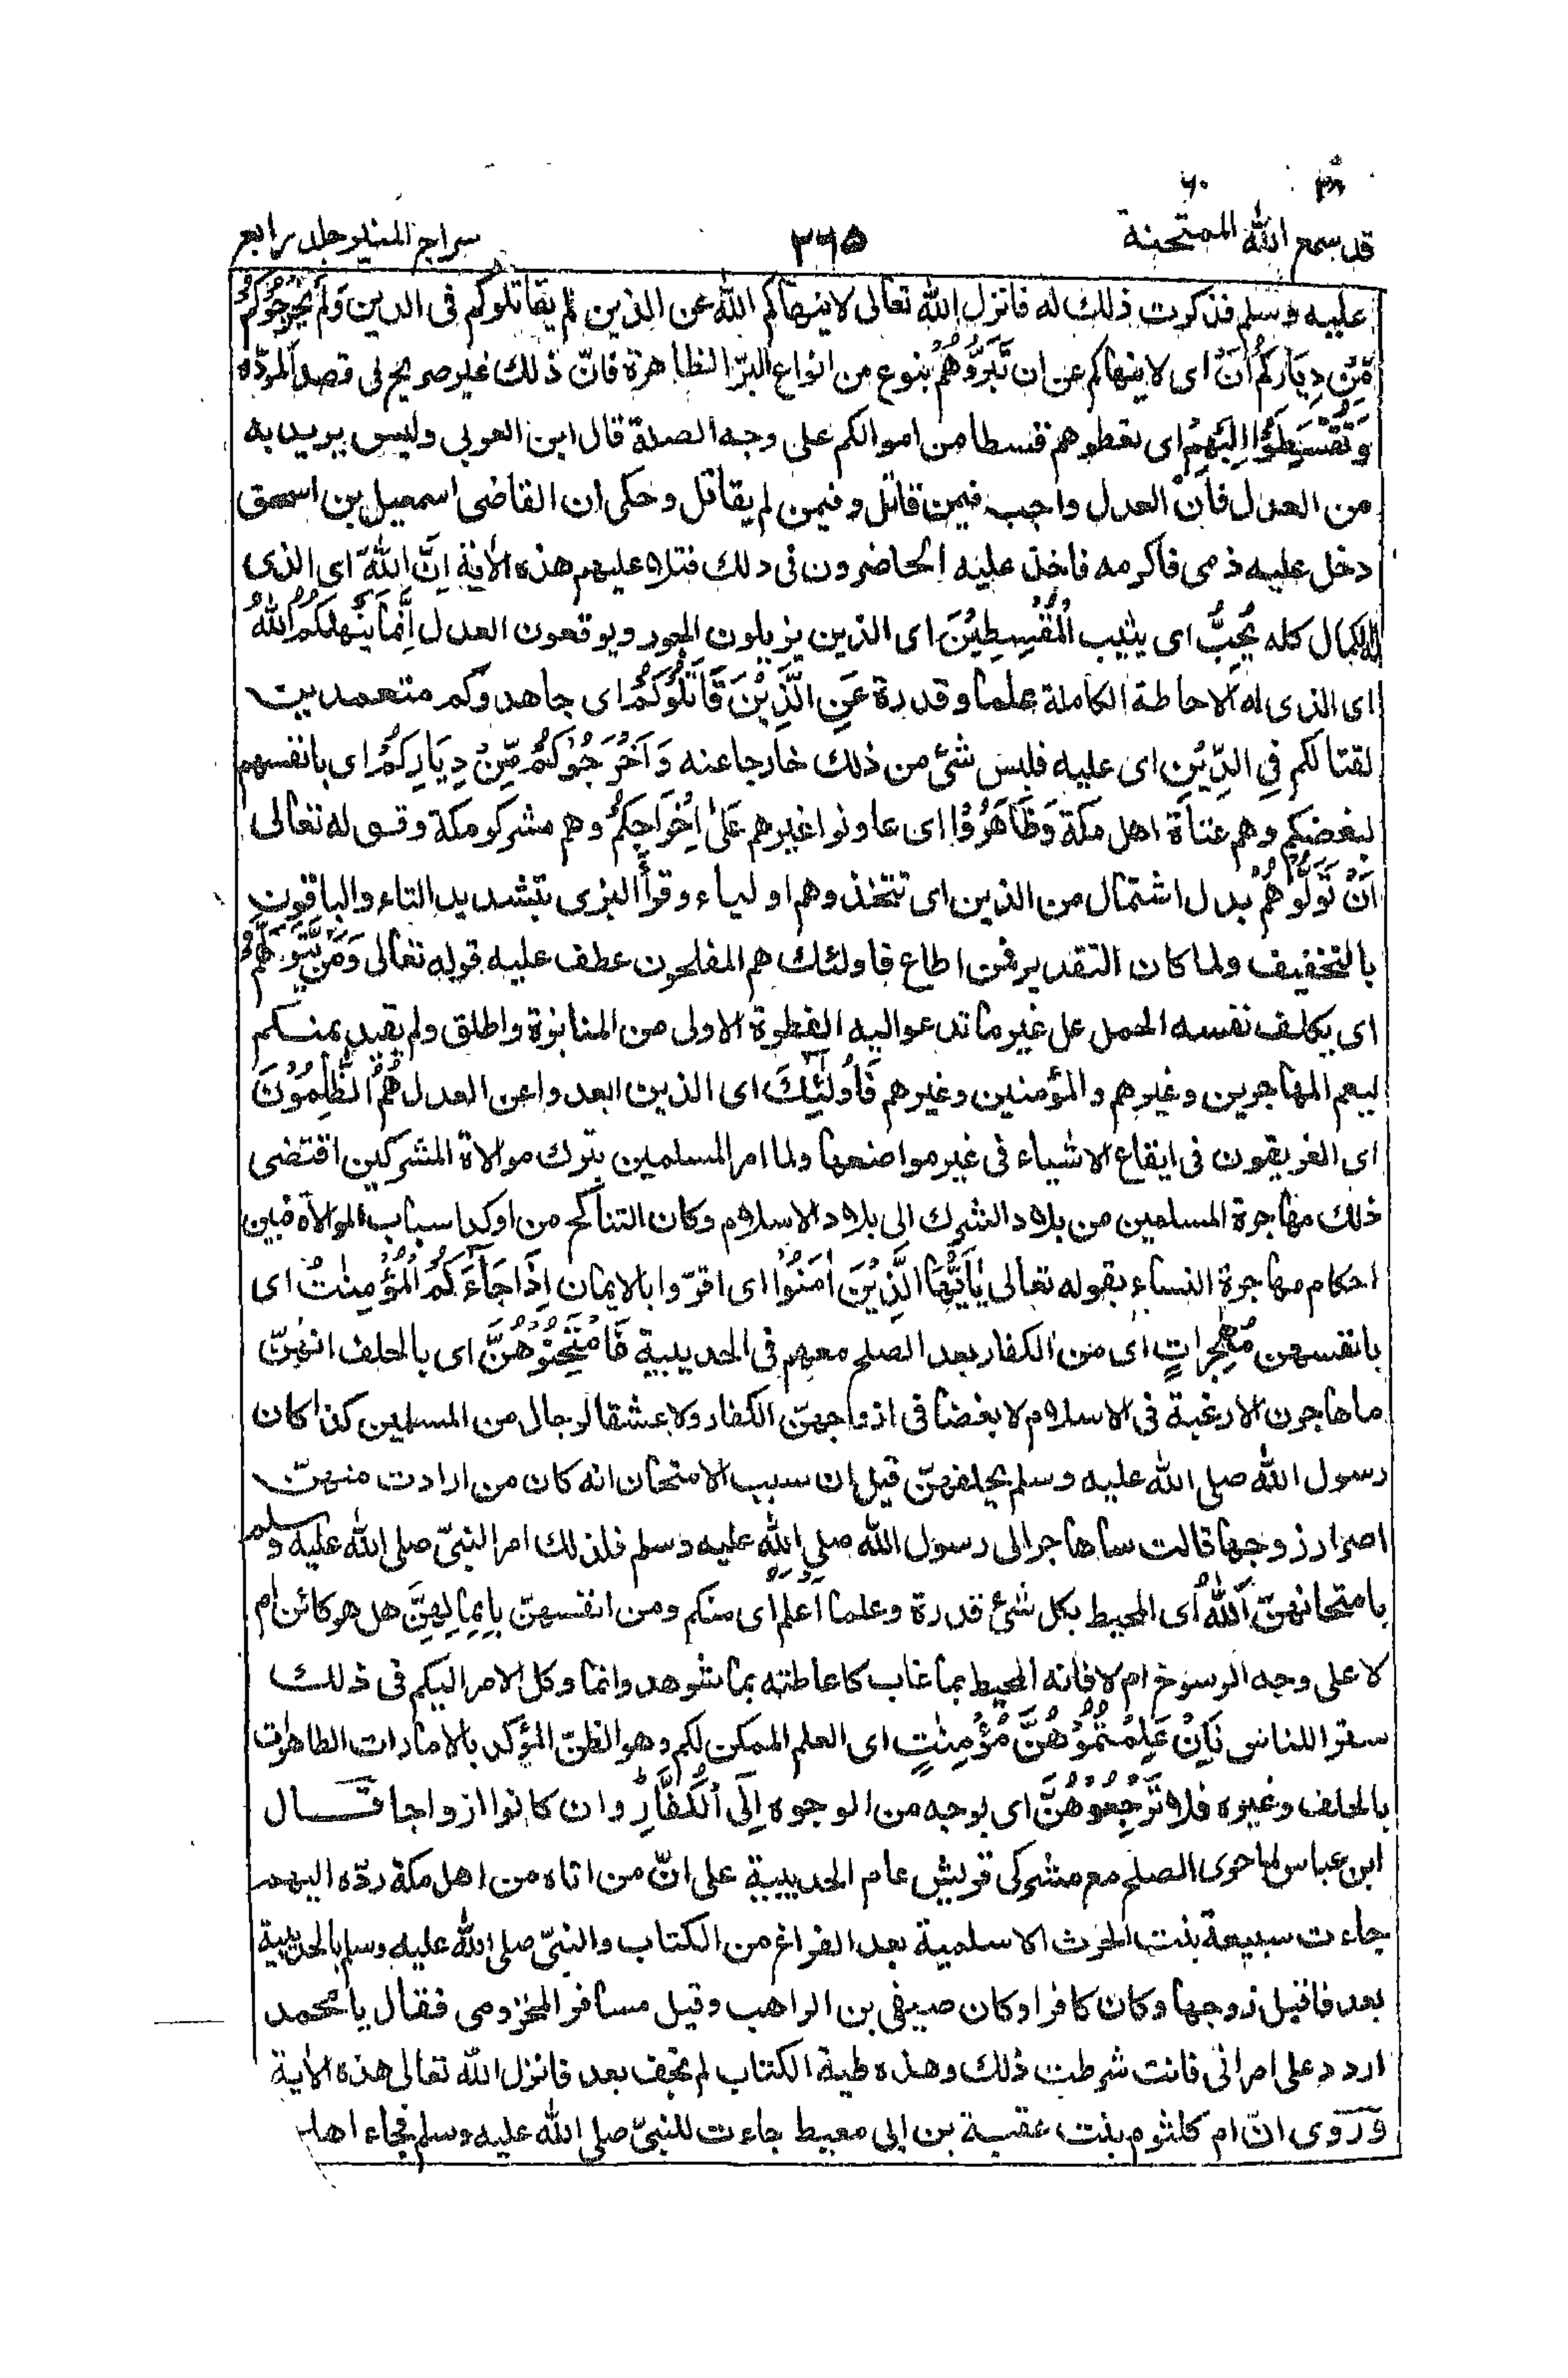 ٢٨ ٦٠
قد سمع الله الممتحنة ٢٦٥ سراج المنير جلد رابع
عليه وسلم فذكرت ذلك له فانزل الله تعالى لا ينهاكم الله عن الذين لم يقاتلوكم فى الدين وَلَمْ يُخْرِجُوكُمْ
مِّنْ دِيَارِكُمْ أَنْ اى لا ينهاكم عن ان تَبَرُّوهُمْ بنوع من انواع البرّ الظاهرة فانّ ذلك غير صريح فى قصد المودّه
وَتُقْسِطُوْا اِلَيْهِمْ اى تعطوهم قسطا من اموالكم على وجه الصلة قال ابن العربى وليس يريد به
من العدل فان العدل واجب فيمن قاتل وفيمن لم يقاتل وحكى ان القاضى اسمعيل بن اسحق
دخل عليه ذمى فاكرمه فاخذ عليه الحاضرون فى ذلك فتلا عليهم هذه الاية اِنَّ اللّٰهَ اى الذى
له الكمال كله يُحِبُّ اى يثيب الْمُقْسِطِيْنَ اى الذين يزيلون الجور ويوقعون العدل اِنَّمَا يَنْهٰكُمُ اللّٰهُ
اى الذى له الاحاطة الكاملة علما وقدرة عَنِ الَّذِيْنَ قَاتَلُوْكُمْ اى جاهدوكم متعمدين
لقتالكم فِى الدِّيْنِ اى عليه فليس شئ من ذلك خارجا عنه وَاَخْرَجُوْكُمْ مِّنْ دِيَارِكُمْ اى بانفسهم
لبغضكم وهم عتاة اهل مكة وَظَاهَرُوْا اى عاونوا غيرهم عَلٰى اِخْرَاجِكُمْ وهم مشركو مكة وقوله تعالى
اَنْ تَوَلَّوْهُمْ بدل اشتمال من الذين اى تتخذوهم اولياء وقرأ البزى بتشديد التاء والباقون
بالتخفيف ولما كان التقدير فمن اطاع فاولئك هم المفلحون عطف عليه قوله تعالى وَمَنْ يَّتَوَلَّهُمْ
اى يكلف نفسه الحمل على غير ما تدعو اليه الفطرة الاولى من المنابذة واطلق ولم يقيد بمنكم
ليعم المهاجرين وغيرهم والمؤمنين وغيرهم فَاُولٰٓئِكَ اى الذين ابعدوا عن العدل هُمُ الظّٰلِمُوْنَ
اى الغريقون فى ايقاع الاشياء فى غير مواضعها ولما امر المسلمين بترك موالاة المشركين اقتضى
ذلك مهاجرة المسلمين من بلاد الشرك الى بلاد الاسلام وكان التناكح من اوكد اسباب الموالاة فبين
احكام مهاجرة النساء بقوله تعالى يٰٓاَيُّهَا الَّذِيْنَ اٰمَنُوْا اى اقرّوا بالايمان اِذَا جَآءَكُمُ الْمُؤْمِنٰتُ اى
بانفسهن مُهٰجِرٰتٍ اى من الكفار بعد الصلح معهم فى الحديبية فَامْتَحِنُوْهُنَّ اى بالحلف انهنّ
ما هاجرن الا رغبة فى الاسلام لا بغضا فى ازواجهنّ الكفار ولا عشقا لرجال من المسلمين كذا كان
رسول الله صلى الله عليه وسلم يحلفهنّ قيل ان سبب الامتحان انه كان من ارادت منهنّ
اضرار زوجها قالت ساهاجر الى رسول الله صلى الله عليه وسلم فلذلك امر النبىّ صلى الله عليه وسلم
بامتحانهنّ اَللّٰهُ اى المحيط بكل شئ قدرة وعلما اَعْلَمُ اى منكم ومن انفسهنّ بِاِيْمَانِهِنَّ هل هو كائن ام
لا على وجه الرسوخ ام لا فانه المحيط بما غاب كاحاطته بما شوهد وانما وكل الامر اليكم فى ذلك
سترا للناس فَاِنْ عَلِمْتُمُوْهُنَّ مُؤْمِنٰتٍ اى العلم الممكن لكم وهو الظنّ المؤكد بالامارات الظاهرات
بالحلف وغيره فلا تَرْجِعُوْهُنَّ اى بوجه من الوجوه اِلَى الْكُفَّارِ وان كانوا ازواجا قال
ابن عباس لما جرى الصلح مع مشركى قريش عام الحديبية على انّ من اتاه من اهل مكة ردّه اليهم
جاءت سبيعة بنت الحرث الاسلمية بعد الفراغ من الكتاب والنبىّ صلى الله عليه وسلم بالحديبية
بعد فاقبل زوجها وكان كافرا وكان صيفى بن الراهب وقيل مسافر المخزومى فقال يا محمد
اردد على امرأتى فانت شرطت ذلك وهذه طية الكتاب لم تجف بعد فانزل الله تعالى هذه الاية
وروى انّ ام كلثوم بنت عقبة بن ابى معيط جاءت للنبىّ صلى الله عليه وسلم فجاء اهل